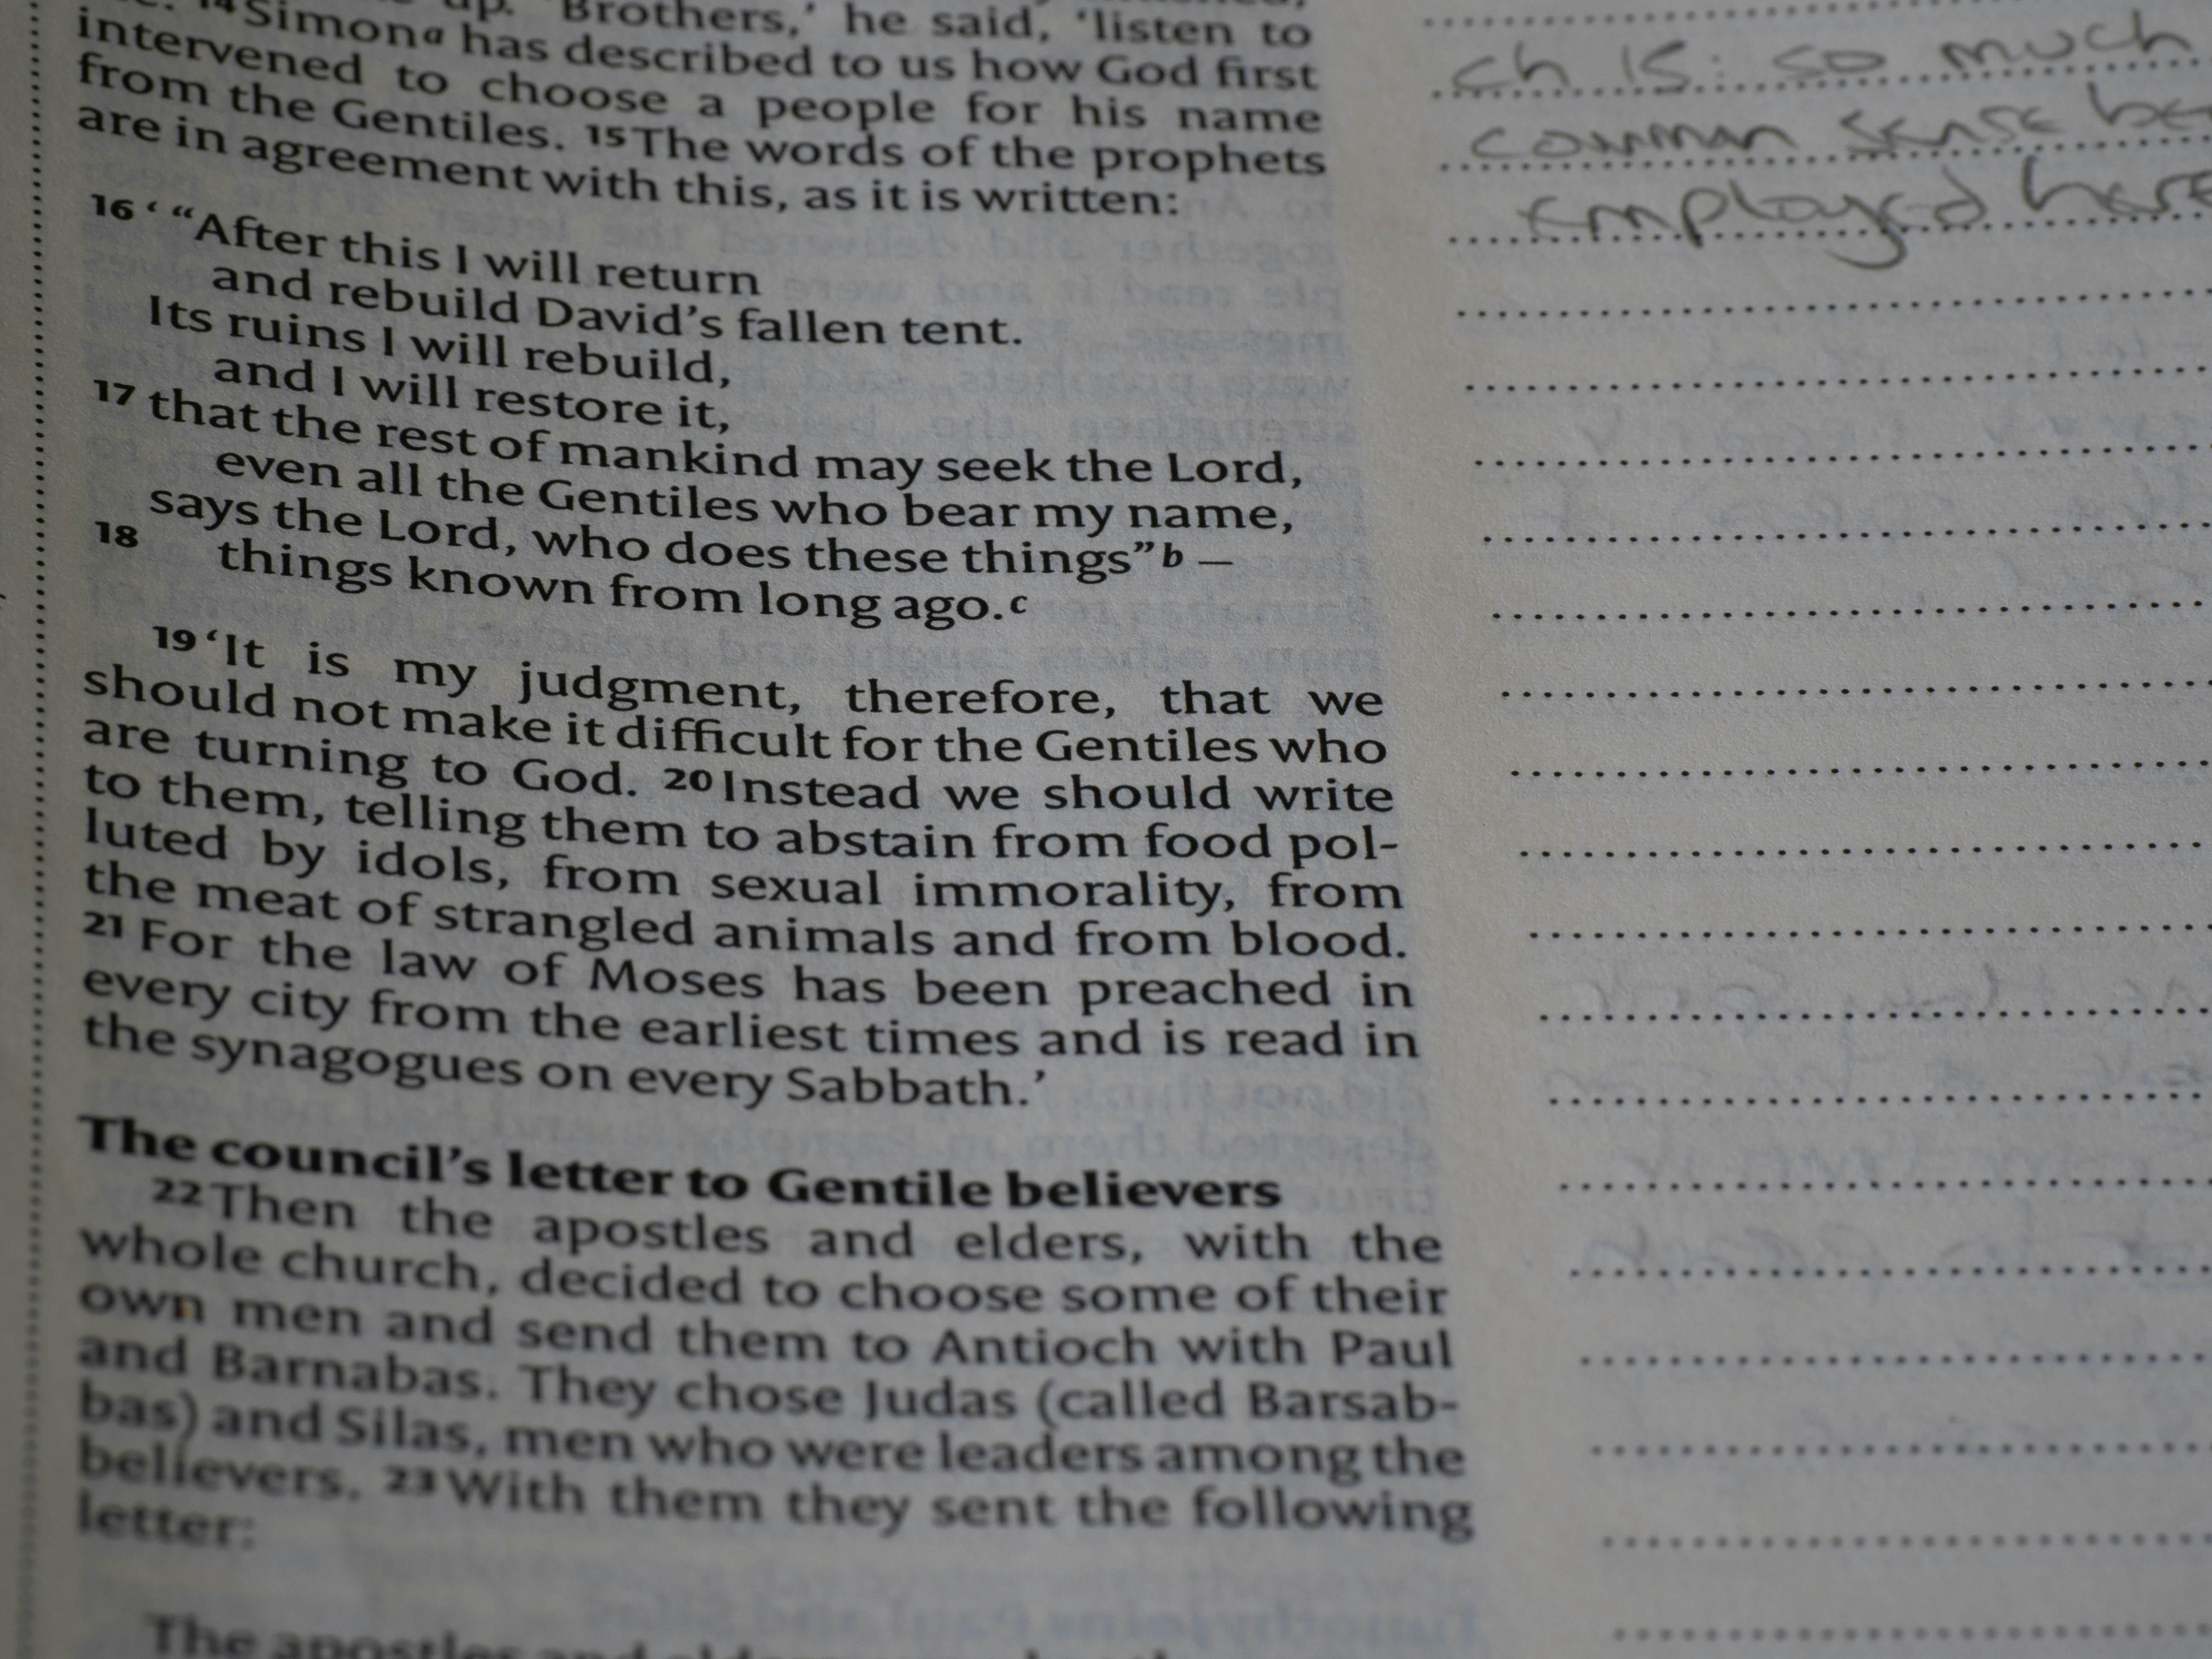 up. 'Brothers,' he said, 'listen to
14 Simon a has described to us how God first
intervened to choose a people for his name
from the Gentiles. 15 The words of the prophets
are in agreement with this, as it is written:
16 ' "After this I will return
and rebuild David's fallen tent.
Its ruins I will rebuild,
and I will restore it,
17 that the rest of mankind may seek the Lord,
even all the Gentiles who bear my name,
says the Lord, who does these things" b –
18 things known from long ago. c
19 'It is my judgment, therefore, that we
should not make it difficult for the Gentiles who
are turning to God. 20 Instead we should write
to them, telling them to abstain from food pol-
luted by idols, from sexual immorality, from
the meat of strangled animals and from blood.
21 For the law of Moses has been preached in
every city from the earliest times and is read in
the synagogues on every Sabbath.'
The council's letter to Gentile believers
22 Then the apostles and elders, with the
whole church, decided to choose some of their
own men and send them to Antioch with Paul
and Barnabas. They chose Judas (called Barsab-
bas) and Silas, men who were leaders among the
believers. 23 With them they sent the following
letter:
The apostles and elders
ch 15: so much
common sense
employed